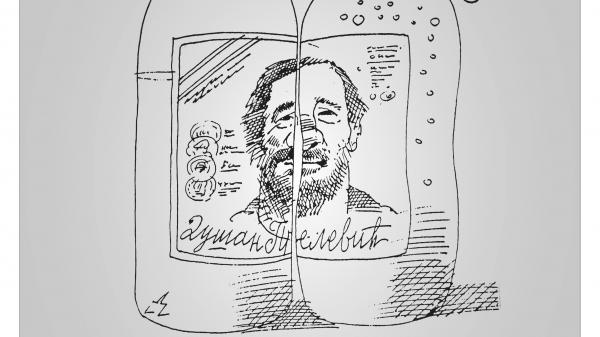 Душан Прелевић